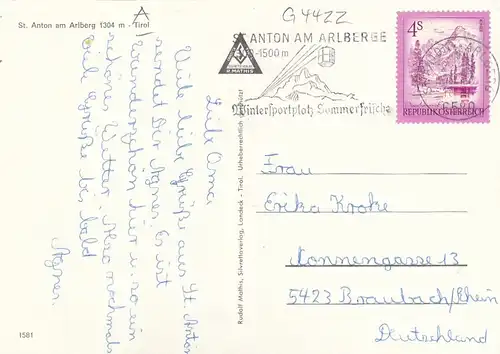 St. Anton am Arlberg 1304 m - Tirol
G 4422
ST. ANTON AM ARLBERG
-1500 m
R. MATHIS
Wintersportplatz Sommerfrische
4 S
REPUBLIK ÖSTERREICH
6580
Liebe Oma
Viele liebe Grüße aus St. Anton
sendet Dir Agnes. Es ist
wunderschön hier u. so ein
schönes Wetter. Also nochmals
viele Grüße bis bald
Agnes.
Rudolf Mathis, Silvrettaverlag, Landeck - Tirol. Urheberrechtlich
Frau
Erika Kroke
Nonnengasse 13
5423 Braubach/Rhein
Deutschland
1581